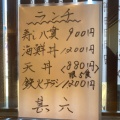 ランチ
寿し八貫 900円
海鮮丼 1200円
天丼 880円
限5食
鉄火チラシ 1200円
甚六